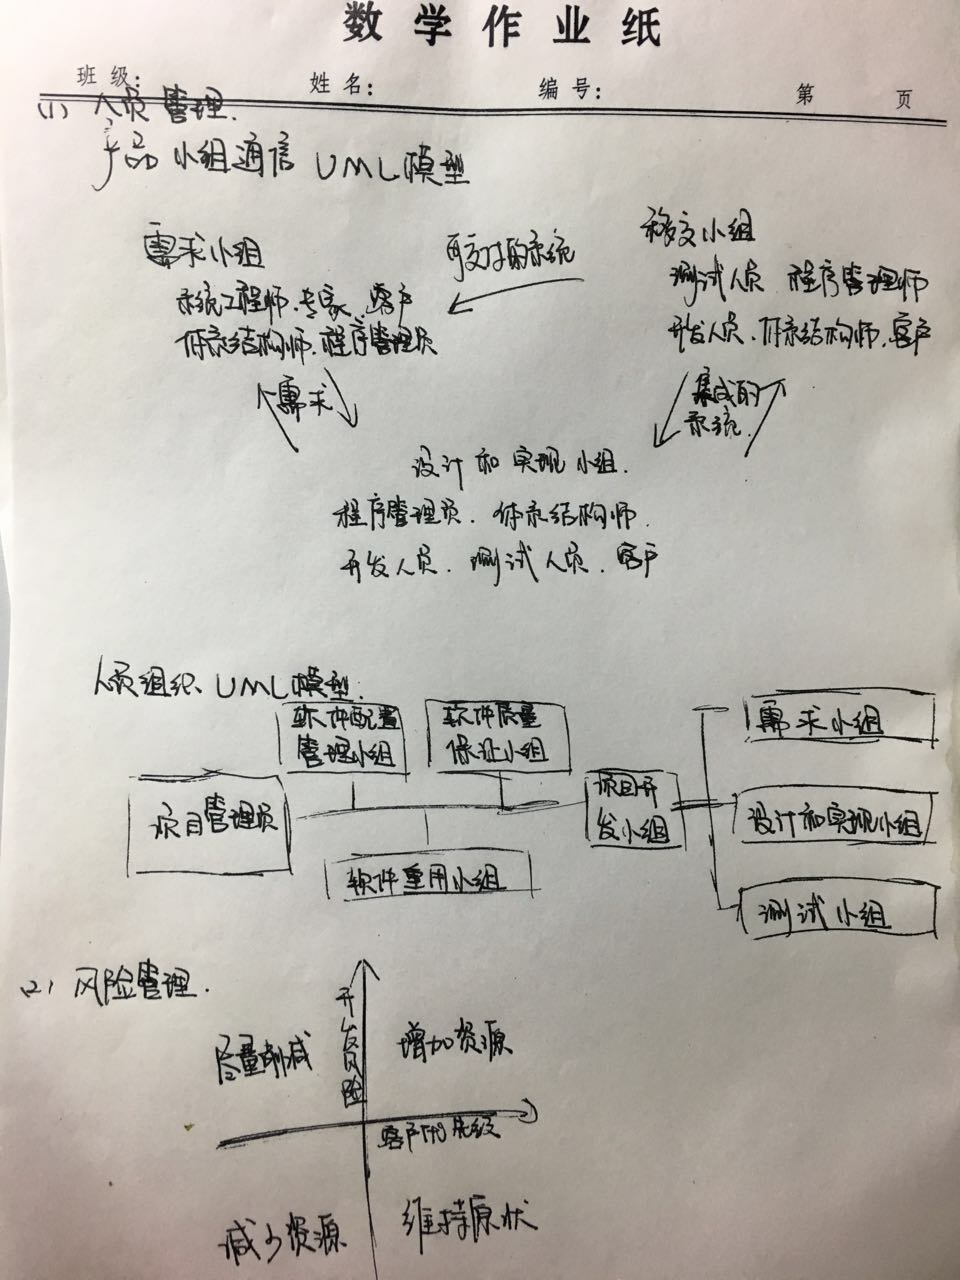 数学作业纸
班级: 姓名: 编号: 第 页
(1) 人员管理.
产品小组通信 UML模型
需求小组
系统工程师.专家.客户
体系结构师.程序管理员
可交付的系统
移交小组
测试人员 程序管理师
开发人员.体系结构师.客户
需求
集成的
系统
设计和实现小组.
程序管理员.体系结构师.
开发人员.测试人员.客户
人员组织UML模型:
软件配置
管理小组
软件质量
保证小组
项目管理员
项目开
发小组
软件重用小组
需求小组
设计和实现小组
测试小组
(2) 风险管理.
开发风险
尽量削减
增加资源
客户优先级
减少资源
维持原状